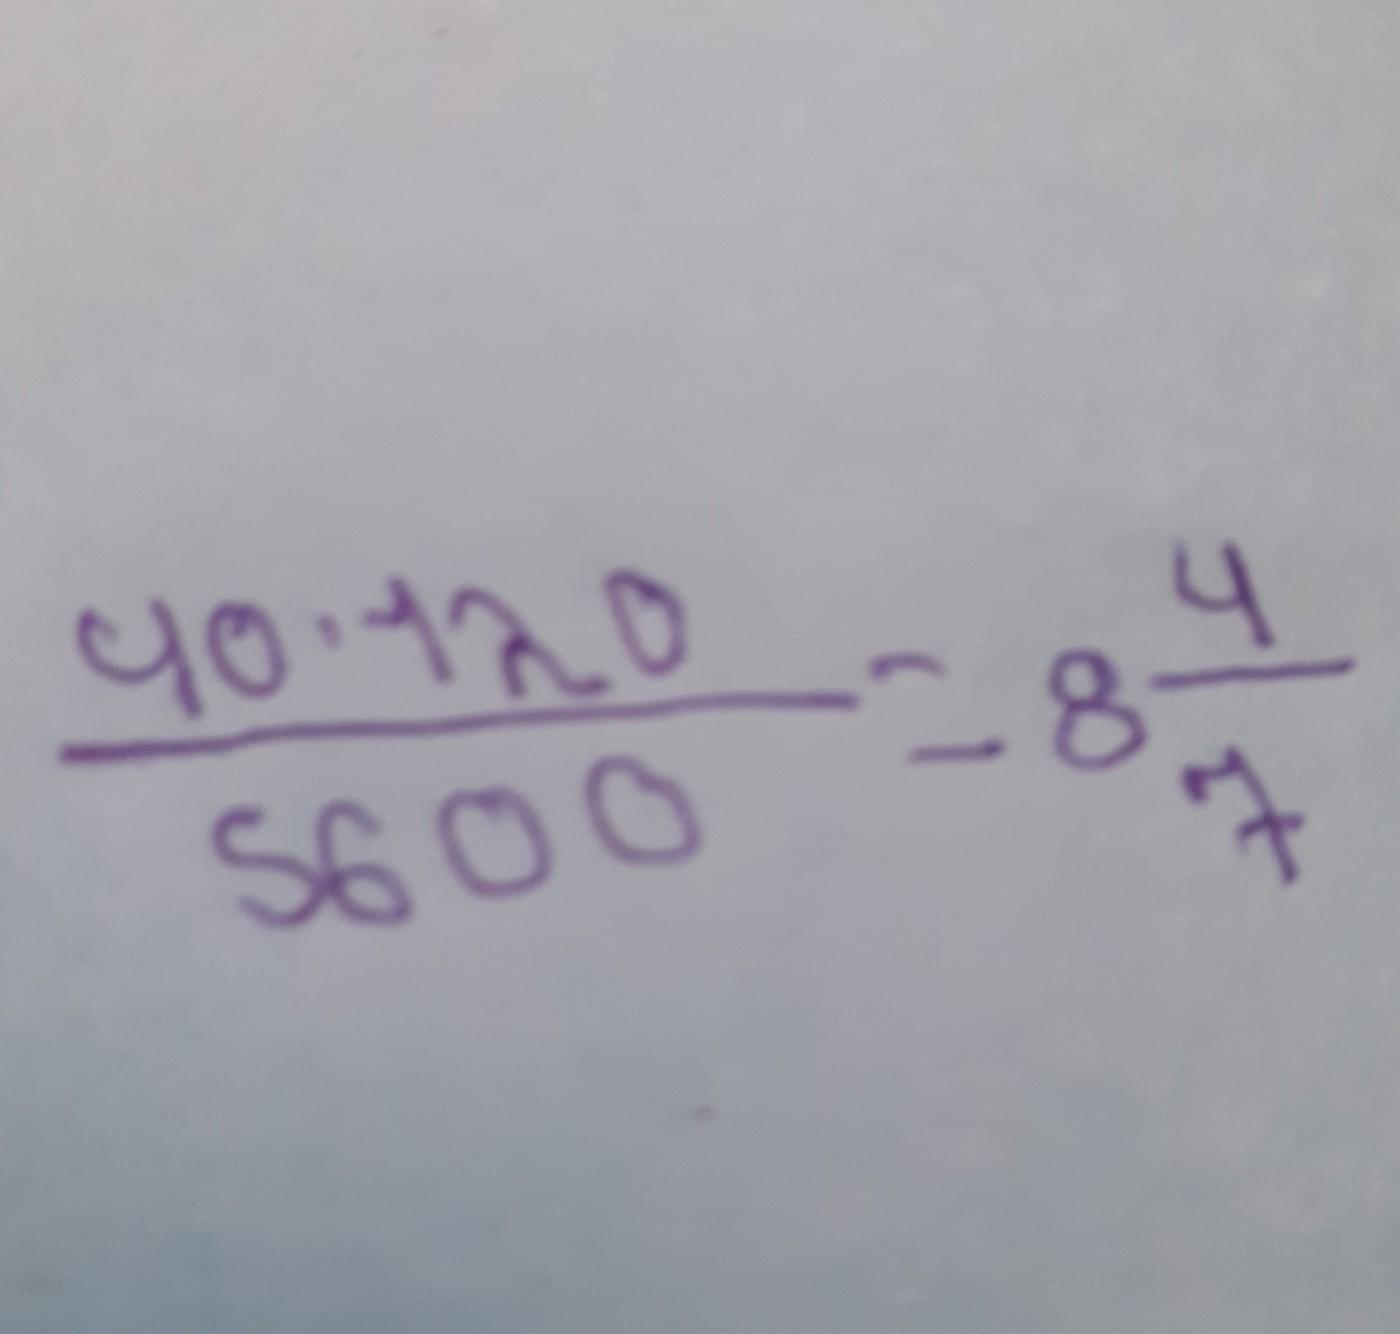 40·120/5600 = 8 4/7